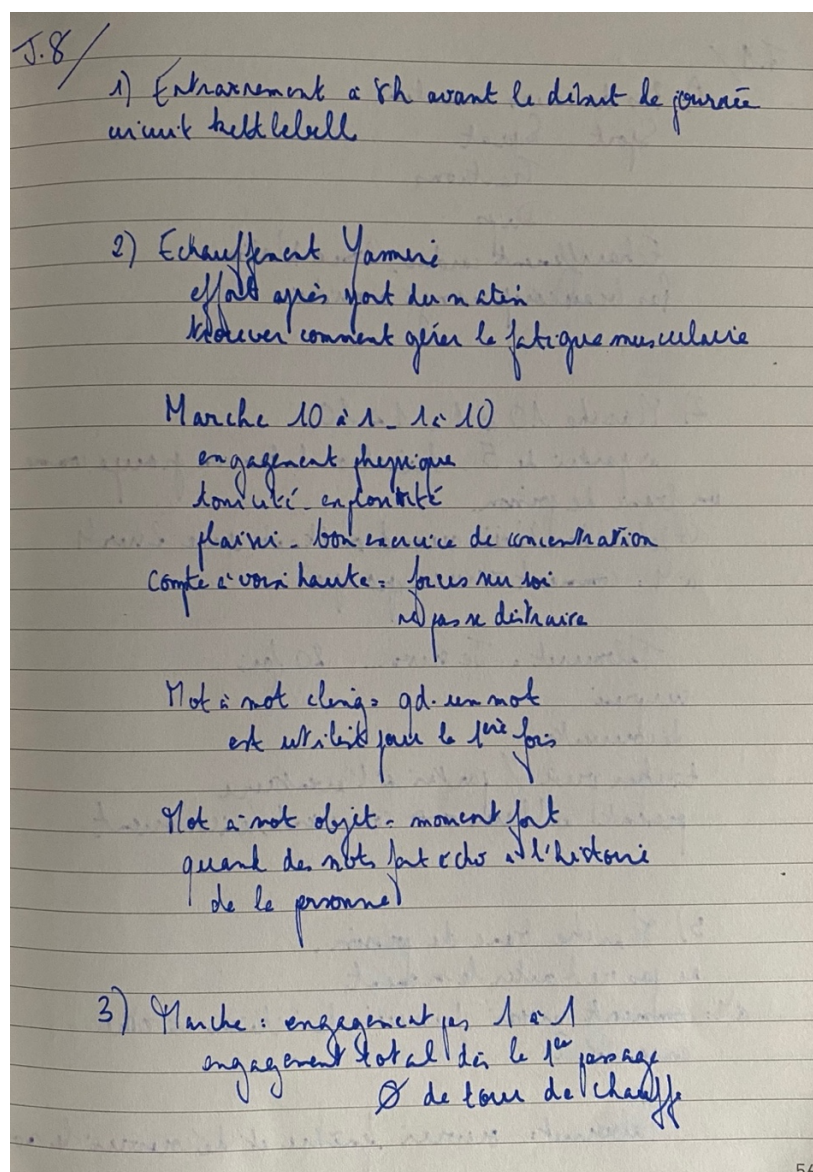 J.8/
1) Entraînement à 8h avant le début de journée
circuit kettlebell
2) Echauffement Yasmine
effort après sport du matin
trouver comment gérer la fatigue musculaire
Marche 10 à 1 - 1 à 10
engagement physique
tonicité - explosivité
plaisir - bon exercice de concentration
Compte à voix haute = focus sur soi
pas se distraire
Mot à mot = qd. un mot
est utilisé pour la 1ère fois
Mot à mot objet = moment fort
quand des mots font echo à l'histoire
de la personne
3) Marche : engagement 1 à 1
engagement total dès le 1er passage
Ø de tour de chauffe
56